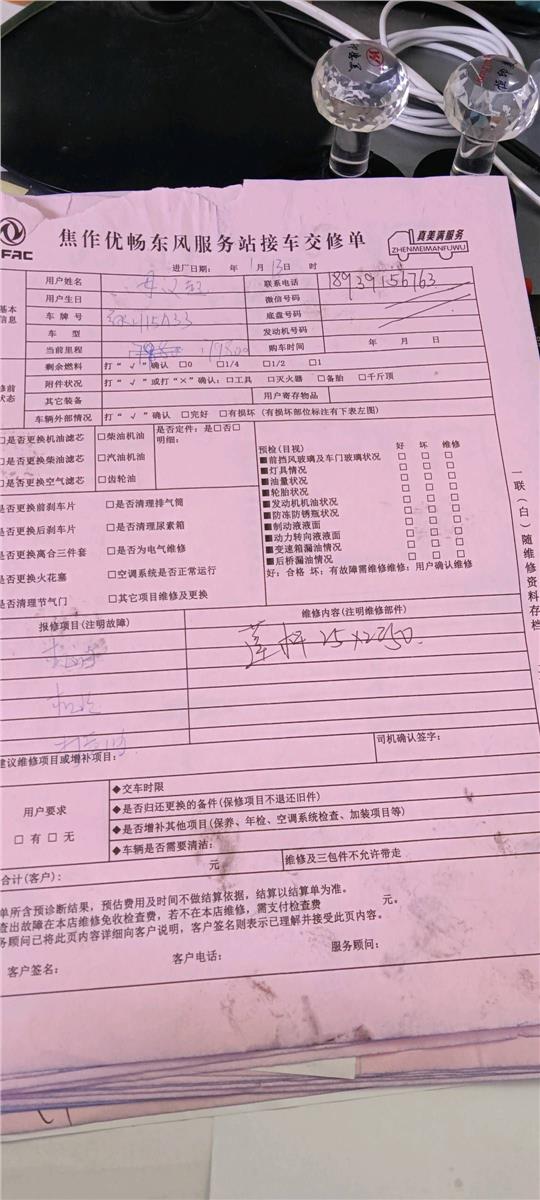 FAC
焦作优畅东风服务站接车交修单
真美满服务
ZHENMEIMANFUWU
进厂日期： 年 1 月 13 日 时
基本信息
用户姓名
联系电话 18939156763
用户生日
微信号码
车 牌 号
底盘号码
车 型
发动机号码
当前里程 79800
购车时间 年 月 日
修前状态
剩余燃料 打“√”确认 □0 □1/4 □1/2 □1
附件状况 打“√”或打“×”确认：□工具 □灭火器 □备胎 □千斤顶
其它装备
用户寄存物品
车辆外部情况 打“√”确认 □完好 □有损坏（有损坏部位标注有下表左图）
□是否更换机油滤芯 □柴油机油 是否定件：是□否□
明细：
□是否更换柴油滤芯 □汽油机油
□是否更换空气滤芯 □齿轮油
是否更换前刹车片 □是否清理排气筒
是否更换后刹车片 □是否清理尿素箱
是否更换离合三件套 □是否为电气维修
是否更换火花塞 □空调系统是否正常运行
是否清理节气门 □其它项目维修及更换
预检(目视) 好 坏 维修
■前挡风玻璃及车门玻璃状况 □ □ □
■灯具情况 □ □ □
■油量状况 □ □ □
■轮胎状况 □ □ □
■发动机机油状况 □ □ □
■防冻防锈瓶状况 □ □ □
■制动液液面 □ □ □
■动力转向液液面 □ □ □
■变速箱漏油情况 □ □ □
■后桥漏油情况 □ □ □
好：合格 坏：有故障需维修维修：用户确认维修
一联（白）随维修资料存档
报修项目(注明故障)
维修内容(注明维修部件)
建议维修项目或增补项目：
司机确认签字：
用户要求
□ 有 □ 无
◆交车时限
◆是否归还更换的备件(保修项目不退还旧件)
◆是否增补其他项目(保养、年检、空调系统检查、加装项目等)
◆车辆是否需要清洁：
合计(客户)： 元
维修及三包件不允许带走
单所含预诊断结果，预估费用及时间不做结算依据，结算以结算单为准。
查出故障在本店维修免收检查费，若不在本店维修，需支付检查费 元。
务顾问已将此页内容详细向客户说明，客户签名则表示已理解并接受此页内容。
客户签名：
客户电话：
服务顾问：